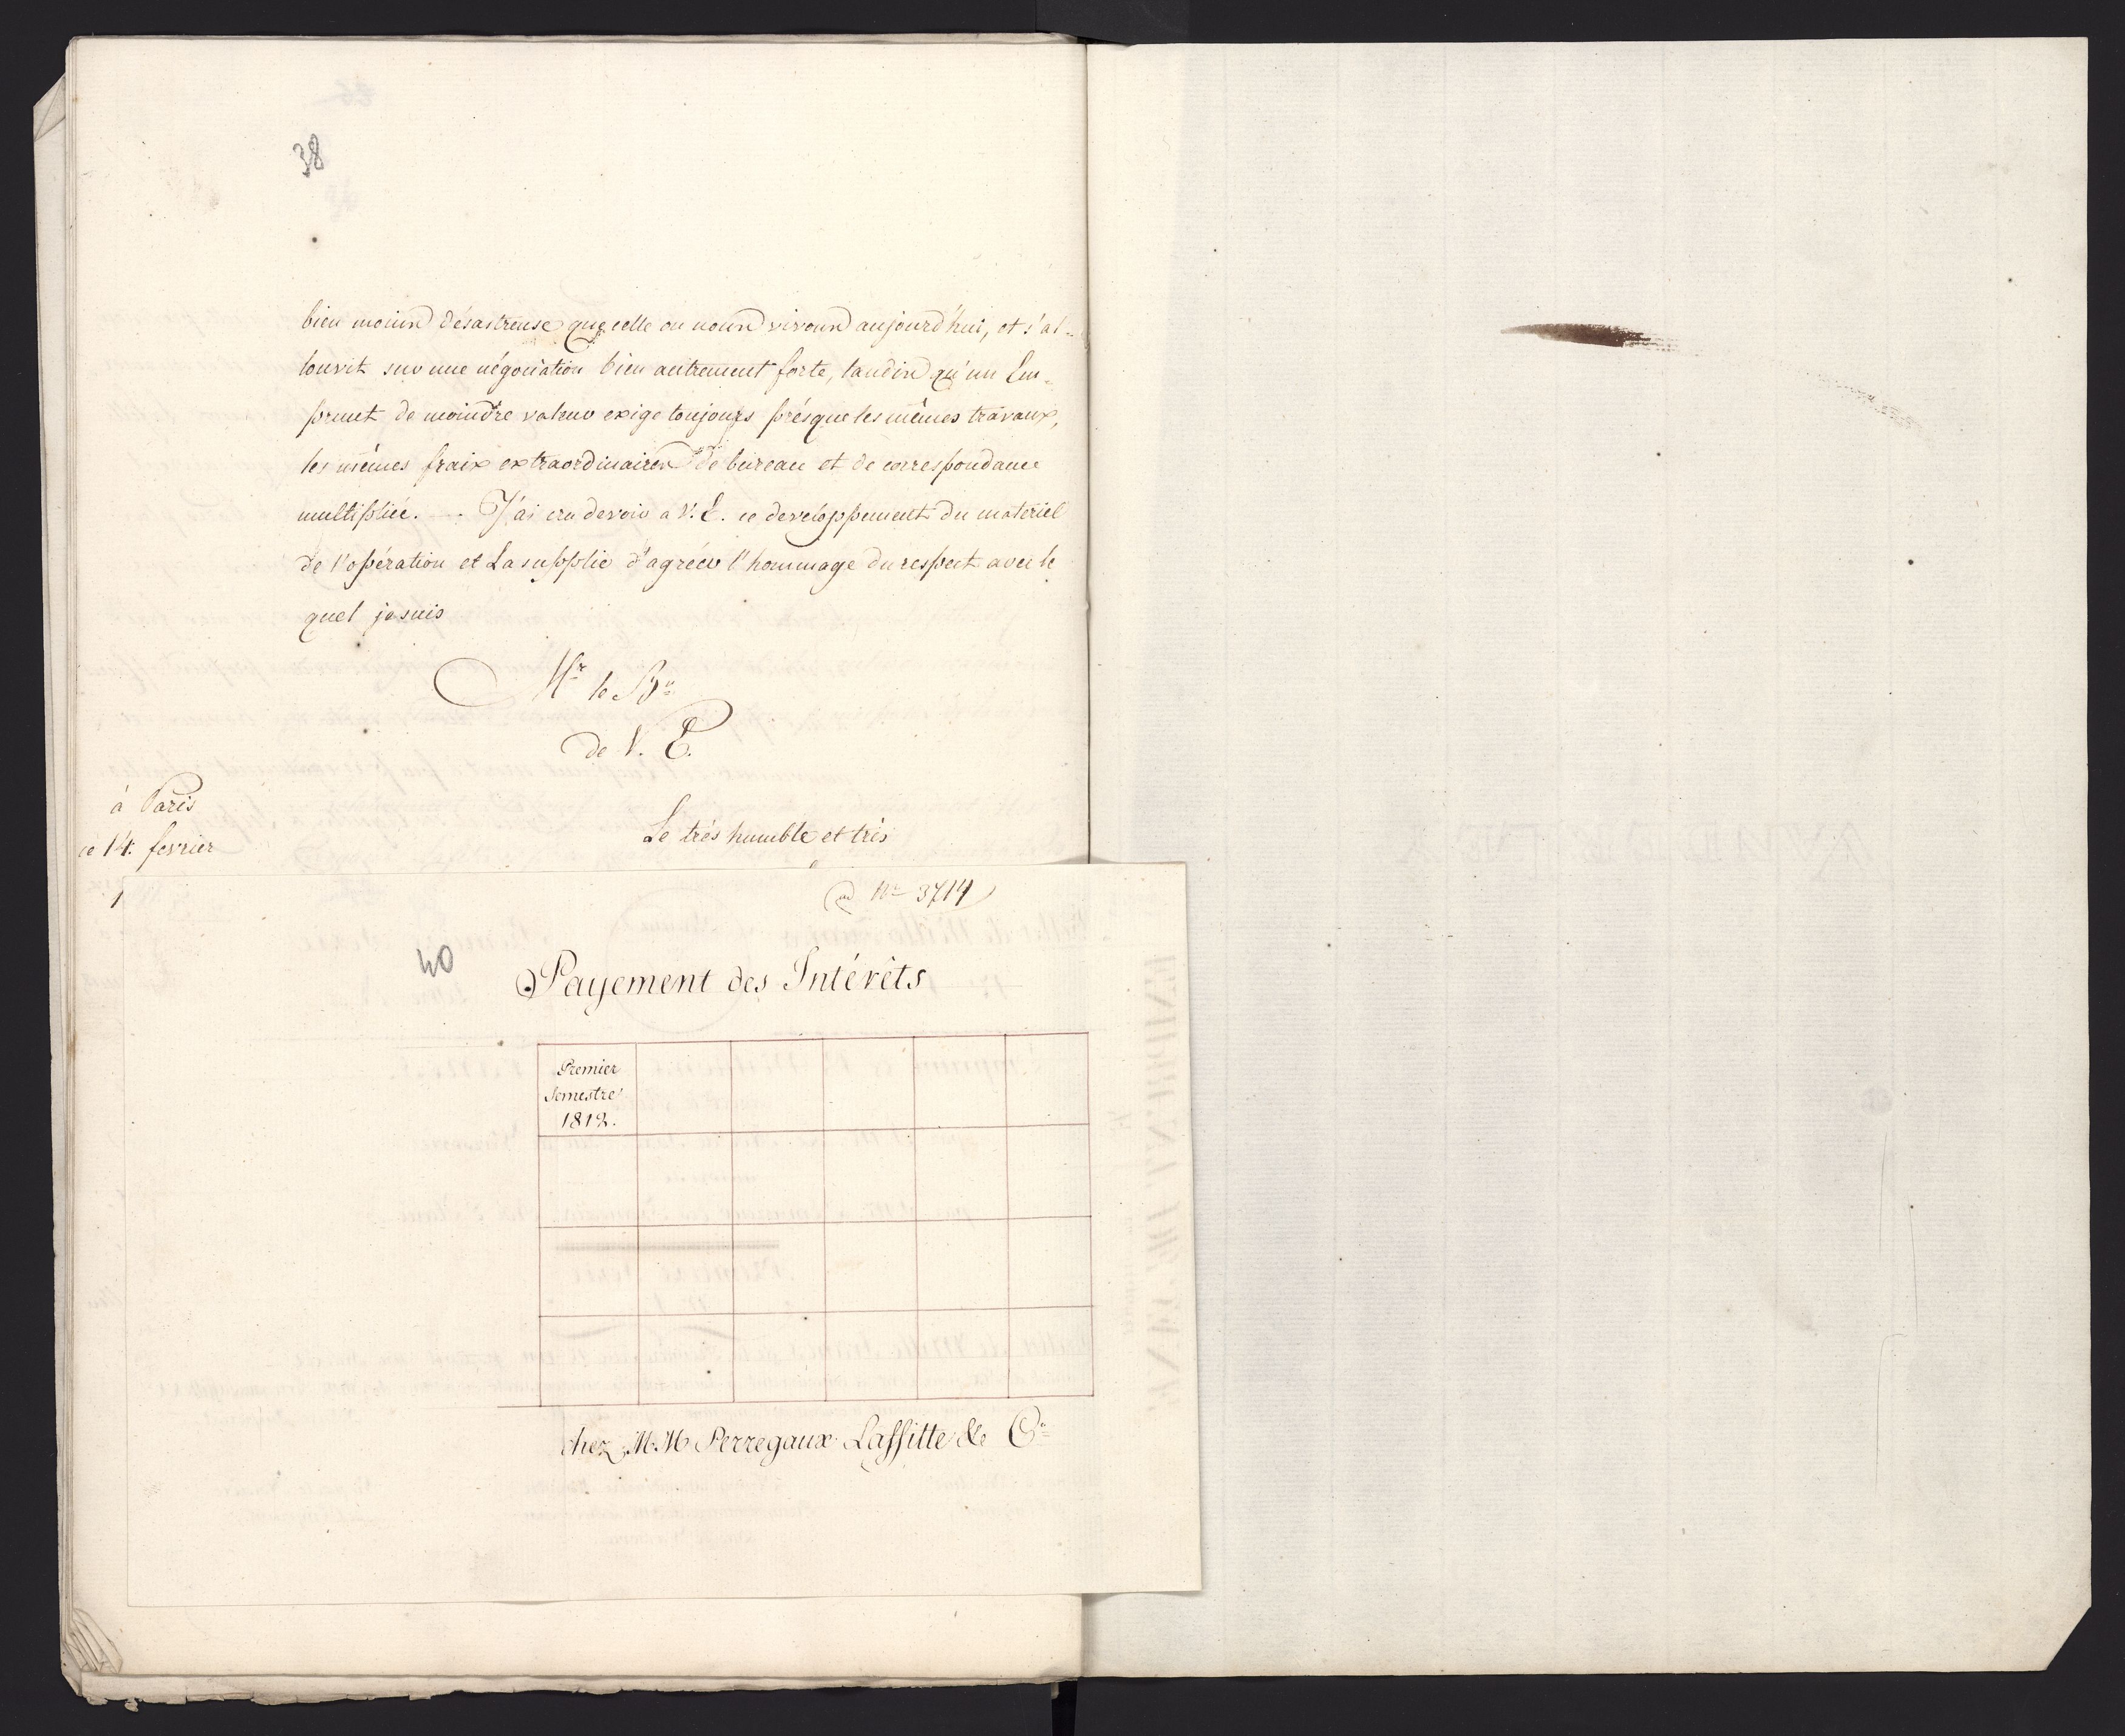 38
bien moins désastreuse que celle ou nous vivons aujourd'hui, et s'at-
touvit sur une négociation bien autrement forte, tandis qu'un Em-
prunt de moindre valeur exige toujours présque les mêmes travaux,
les mêmes fraix extraordinaires de bureau et de correspondance
multipliée. — . J'ai cru devoir a V. E. ce developpement du matériel
de l'opération et La supplie d'agréer l'hommage du respect avec le
quel je suis
Mr le Bn
de V. E.
à Paris
ce 14. fevrier
Le trés humble et très
1
ad No 3714
40
Payement des Intérêts
Premier
Semestre
1812.
chez M.M Perregaux Laffitte & Co